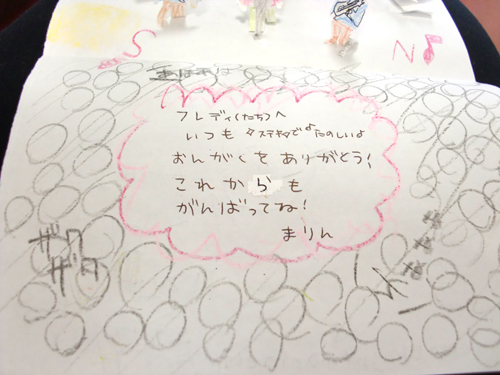 S
N
フレディ(たち)へ
いつもステキでたのしいよ
おんがくをありがとう!
これからも
がんばってね!
まりん
ザワ
ザワ